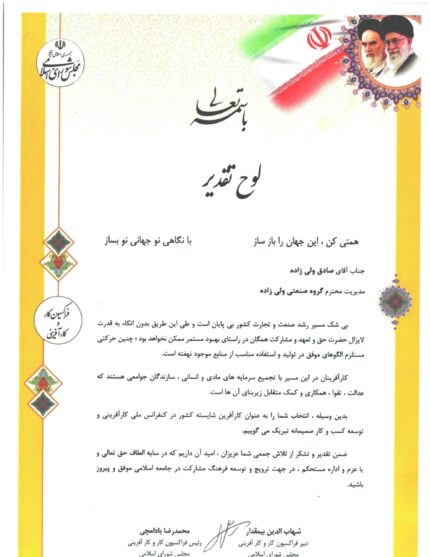 جمهوری اسلامی ایران
مجلس شورای اسلامی
باسمه تعالی
لوح تقدیر
همتی کن ، این جهان را باز ساز با نگاهی نو جهانی نو بساز
جناب آقای صادق ولی زاده
مدیریت محترم گروه صنعتی ولی زاده
فراکسیون کار
و
کارآفرینی
بی شک مسیر رشد صنعت و تجارت کشور بی پایان است و طی این طریق بدون اتکاء به قدرت
لایزال حضرت حق و تعهد و مشارکت همگان در راستای بهبود مستمر ممکن نخواهد بود ؛ چنین حرکتی
مستلزم الگوهای موفق در تولید و استفاده مناسب از منابع موجود نهفته است.
کارآفرینان در این مسیر با تجمیع سرمایه های مادی و انسانی ، سازندگان جوامعی هستند که
عدالت ، تقوا ، همکاری و کمک متقابل زیربنای آن ها است.
بدین وسیله ، انتخاب شما را به عنوان کارآفرین شایسته کشور در کنفرانس ملی کارآفرینی و
توسعه کسب و کار صمیمانه تبریک می گوییم.
ضمن تقدیر و تشکر از تلاش جمعی شما عزیزان ، امید آن داریم که در سایه الطاف حق تعالی و
با عزم و اداره مستحکم ، در جهت ترویج و توسعه فرهنگ مشارکت در جامعه اسلامی موفق و پیروز
باشید.
شهاب الدین بیمقدار محمدرضا بادامچی
دبیر فراکسیون کار و کار آفرینی رئیس فراکسیون کار و کار آفرینی
مجلس شورای اسلامی مجلس شورای اسلامی